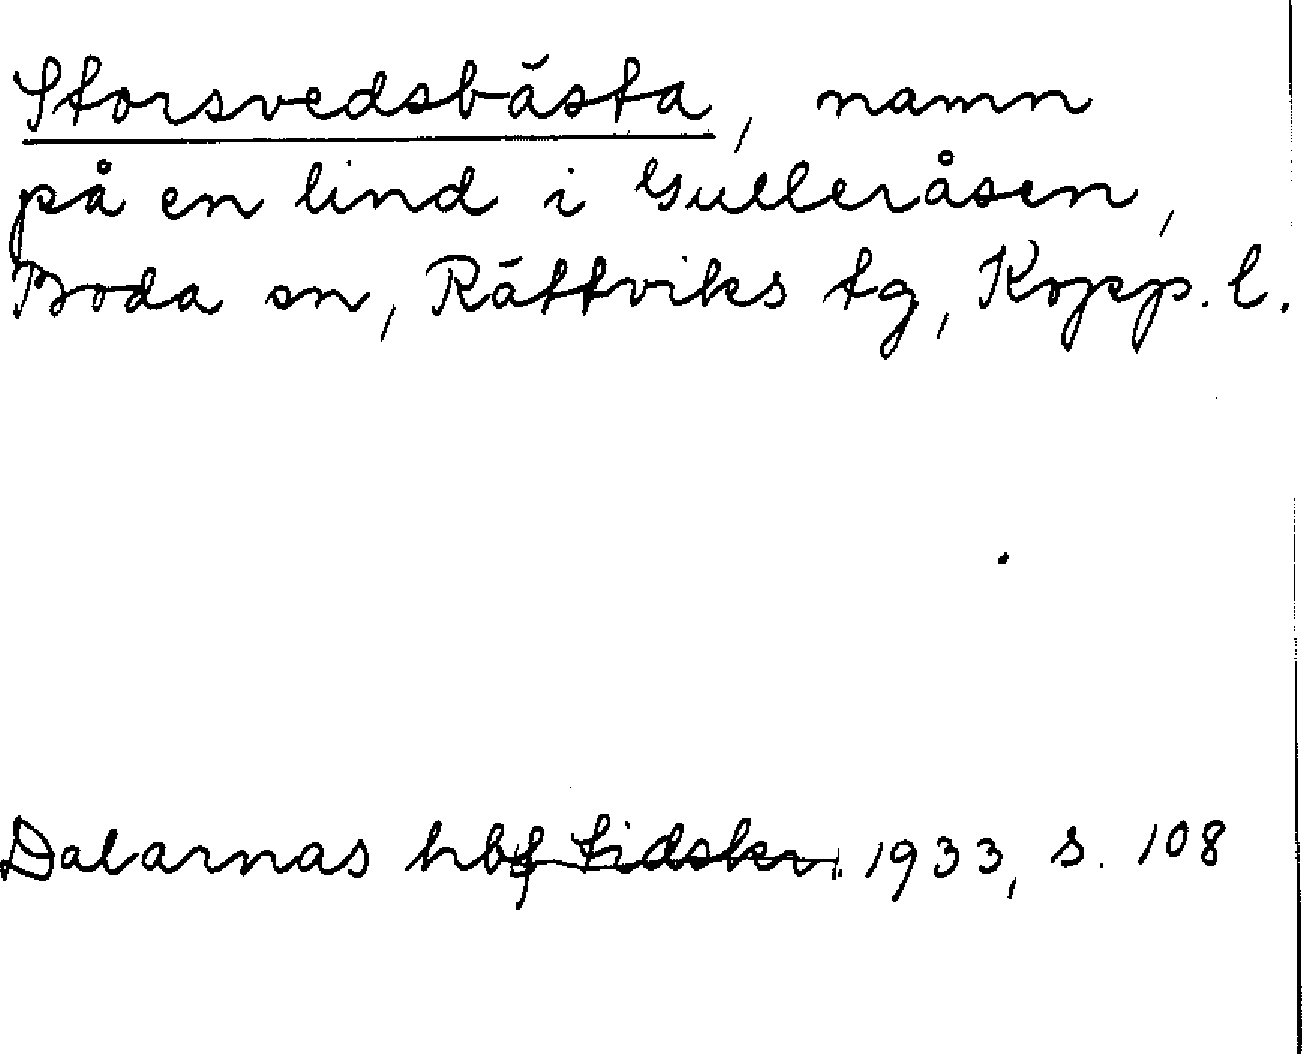 Storsvedsbästa, namn
på en lind i Gulleråsen,
Boda sn, Rättviks tg, Kopp. l.
Dalarnas hbf tidskr. 1933, s. 108